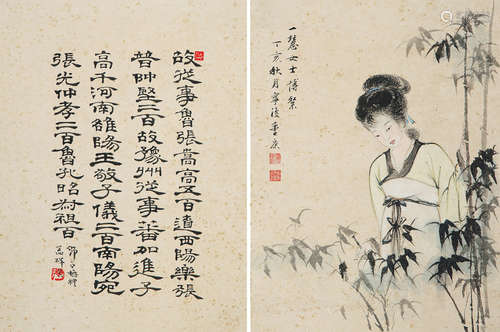 故從事魯張嵩高五百遼西陽樂張
普堅二百故豫州從事蕃加進子
高千河南雒陽王敬子二百南陽宛
張光仲孝二百魯孔昭叔祖百
一慧女士博粲
丁亥秋月寧波